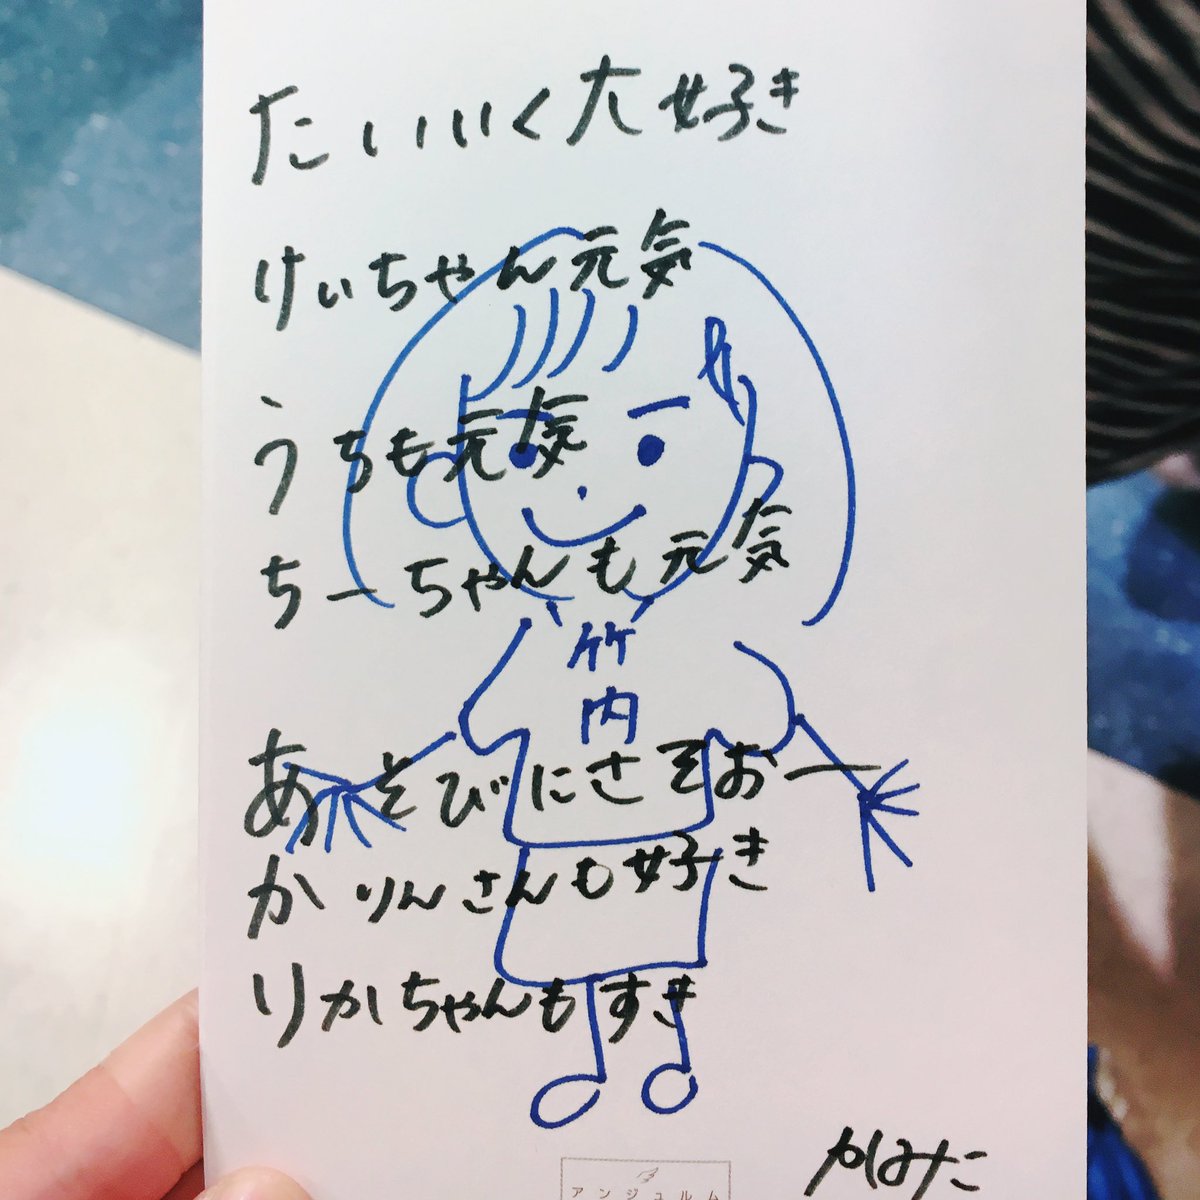 たいいく大好き
けいちゃん元気
うちも元気
ちーちゃんも元気
竹
内
あそびにさそおー
かりんさんも好き
りかちゃんもすき
かみた
アンジュルム